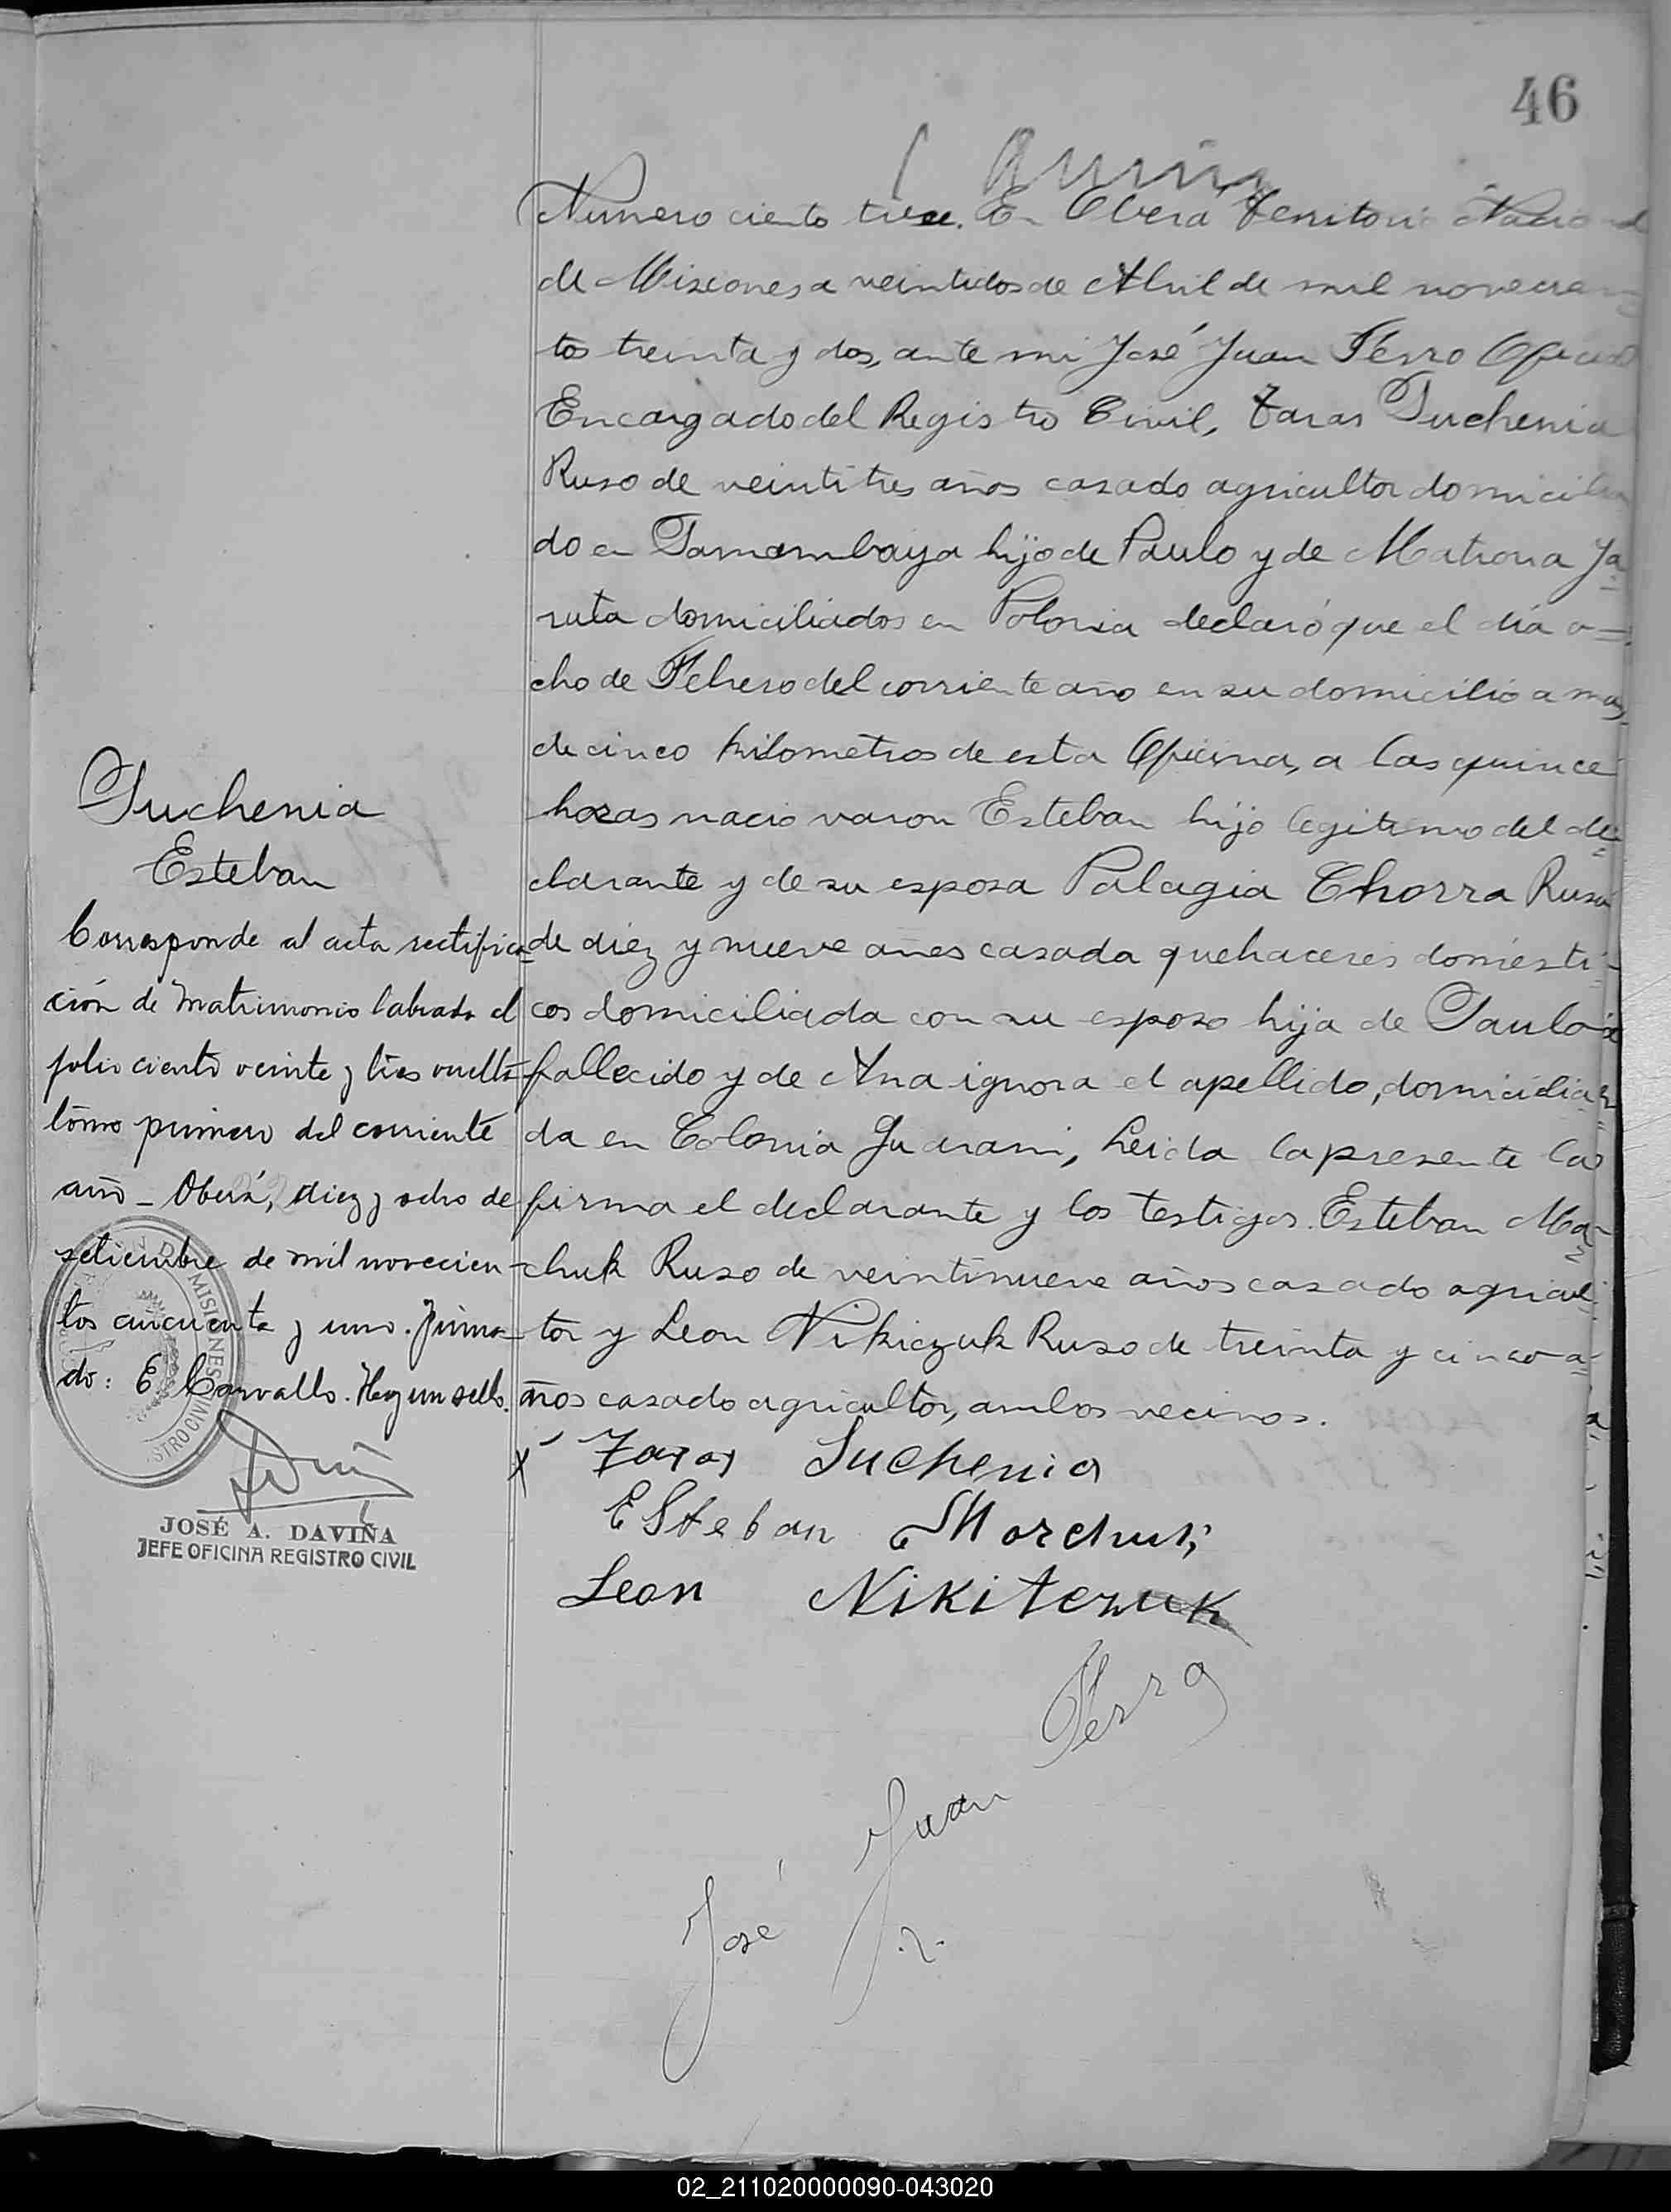 46
Numero ciento trece. En Oberá Territorio Nacional
de Misiones a veintidos de Abril de mil novecien
tos treinta y dos, ante mi José Juan Ferro Oficial
Encargado del Registro Civil, Taras Suchenia
Ruso de veintitres años casado agricultor domicilia
do en Tamambaya hijo de Paulo y de Matrona Ja=
ruta domiciliados en Polonia declaró que el día o=
cho de Febrero del corriente año en su domicilio a mas
de cinco kilometros de esta Oficina, a las quince
horas nacio varon Esteban hijo legitimo del de=
clarante y de su esposa Palagia Chorra Rusa
de diez y nueve años casada quehaceres domesti=
cos domiciliada con su esposo hija de Paulo
fallecido y de Ana ignora el apellido, domicilia=
da en Colonia Guarani, Leida la presente la
firma el declarante y los testigos Esteban Mar=
chuk Ruso de veintinueve años casado agricul=
tor y Leon Nikiczuk Ruso de treinta y cinco a=
años casado agricultor, ambos vecinos.
x Taras Suchenia
Esteban Marchuk
Leon Nikitczuk
José Juan Ferro
Suchenia
Esteban
Corresponde al acta rectifica=
ción de matrimonio labrada al
folio ciento veinte y tres vuelto
tomo primero del corriente
año - Oberá, diez y ocho de
setiembre de mil novecien-
tos cincuenta y uno. Firma-
do: E. Carvallo. Hay un sello.
MISIONES
STRO CIVIL
JOSÉ A. DAVIÑA
JEFE OFICINA REGISTRO CIVIL
02_211020000090-043020